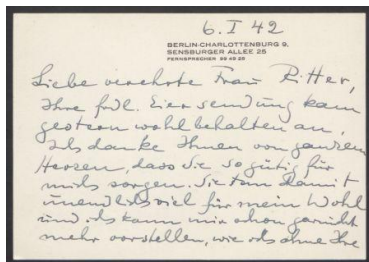 6. I 42
BERLIN-CHARLOTTENBURG 9.
SENSBURGER ALLEE 25
FERNSPRECHER
Liebe verehrte Frau Ritter,
Ihre frdl. Eiersendung kam
gestern wohlbehalten an,
Ich danke Ihnen von ganzem
Herzen, dass Sie so gütig für
mich sorgen. Sie tun damit
unendlich viel für mein Wohl
und ich kann mir schon garnicht
mehr vorstellen, wie ich ohne Ihre